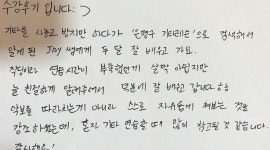 수강후기 입니다:)
기타를 사놓고 방치만 하다가 '은평구 기타레슨'으로 검색해서
알게 된 Joy 쌤께 두 달 잘 배우고 가요.
직장이라 연습시간이 부족했던게 살짝 아쉽지만
늘 친절하게 알려주셔서 덕분에 잘 배운 갑니다
악보를 따라치는게 아니라 스스로 자유롭게 쳐보는 것을
강조하셨는데, 혼자 기타 연습할 때 많이 참고될 것 같습니다.
감사해요!